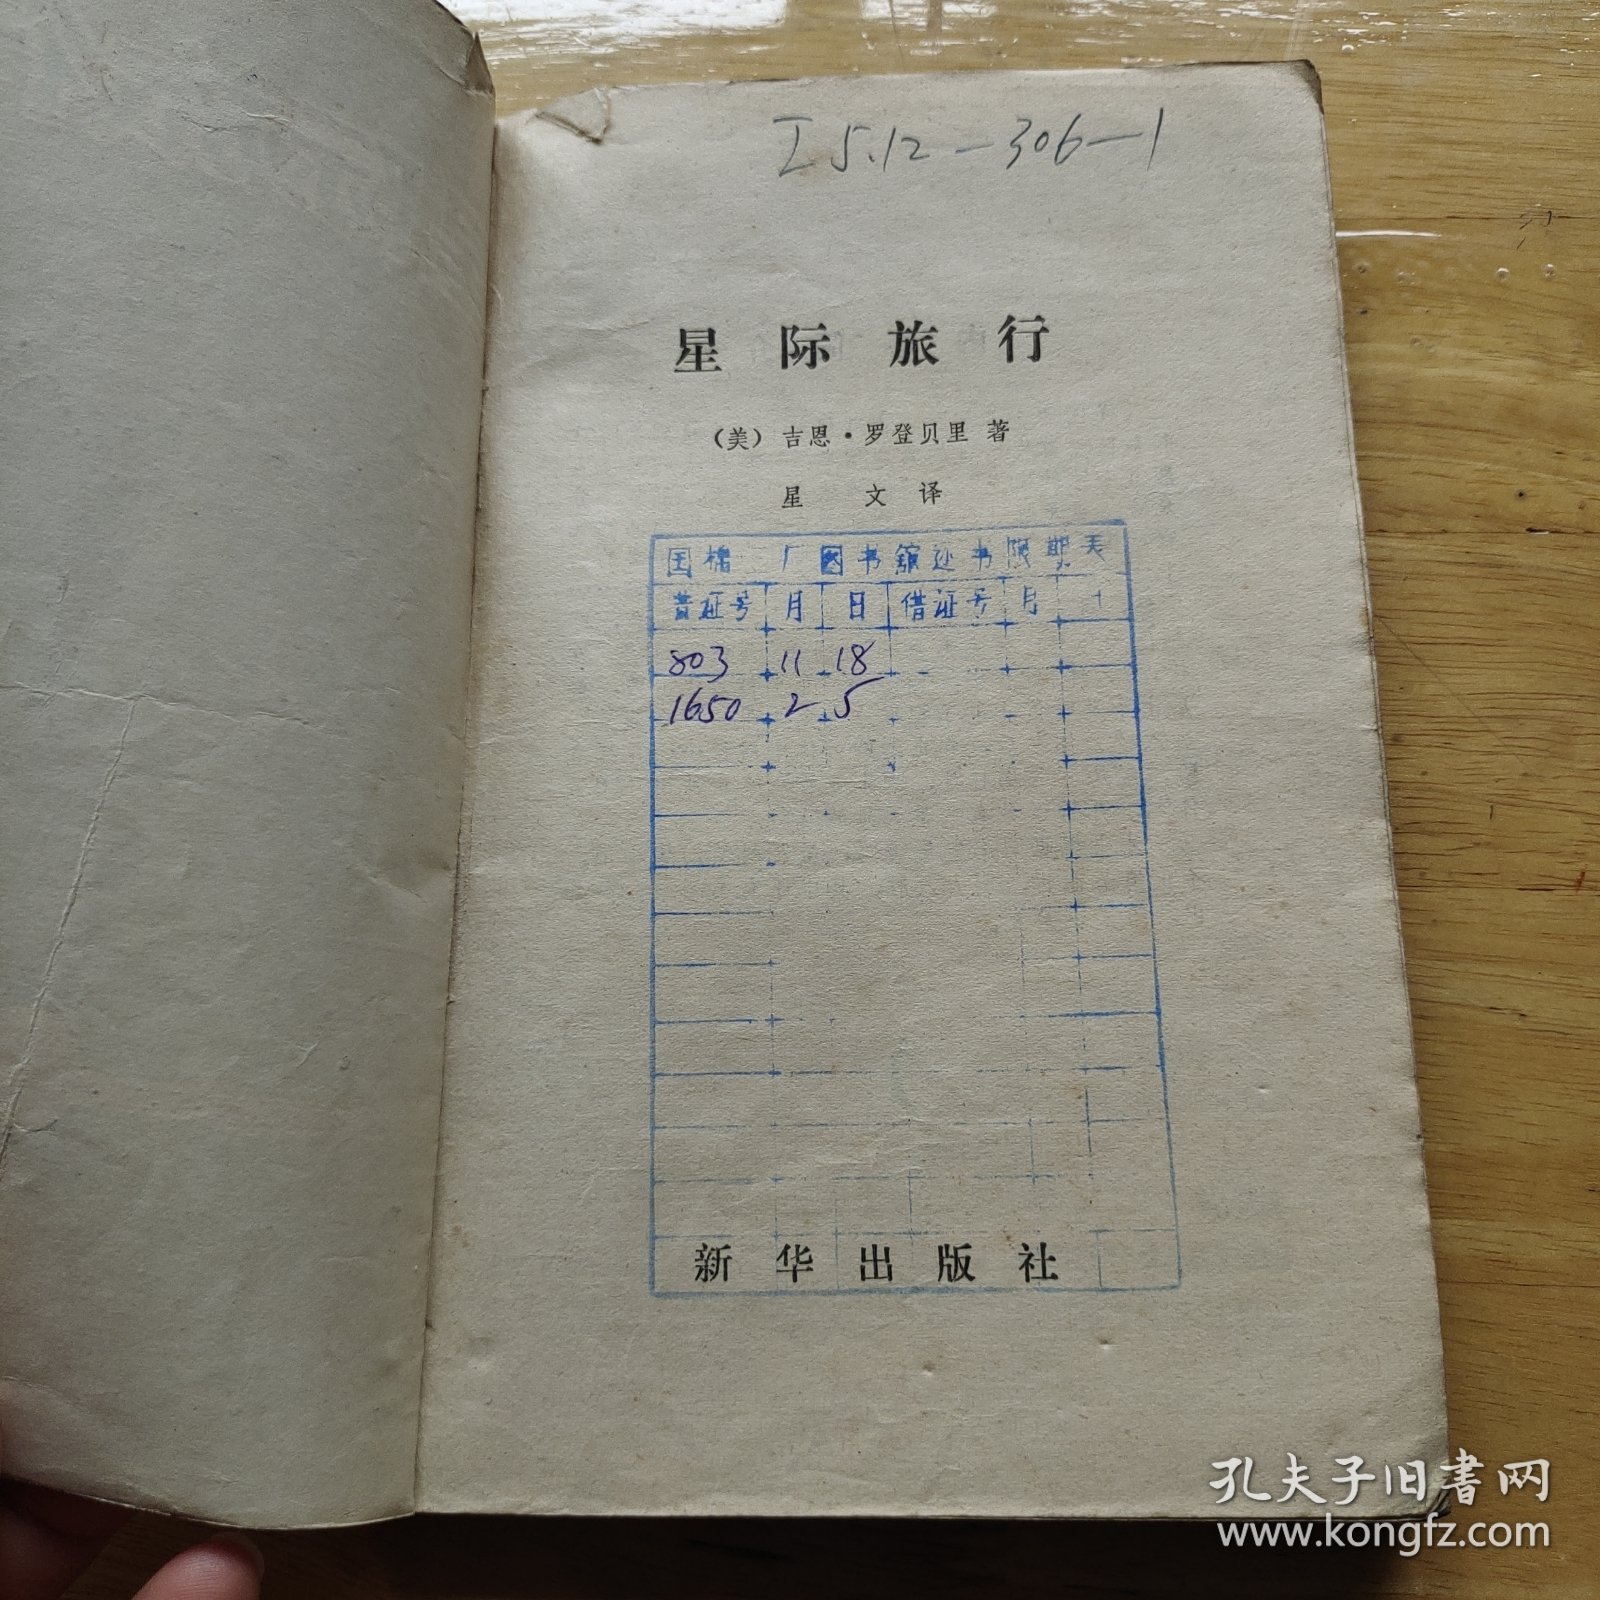 I5.12-306-1
星际旅行
（美）吉恩·罗登贝里 著
星 文 译
国棉二厂图书馆还书限期表
借证号 月 日 借证号 月
803 11 18
1650 2 5
新华出版社
孔夫子旧书网
www.kongfz.com